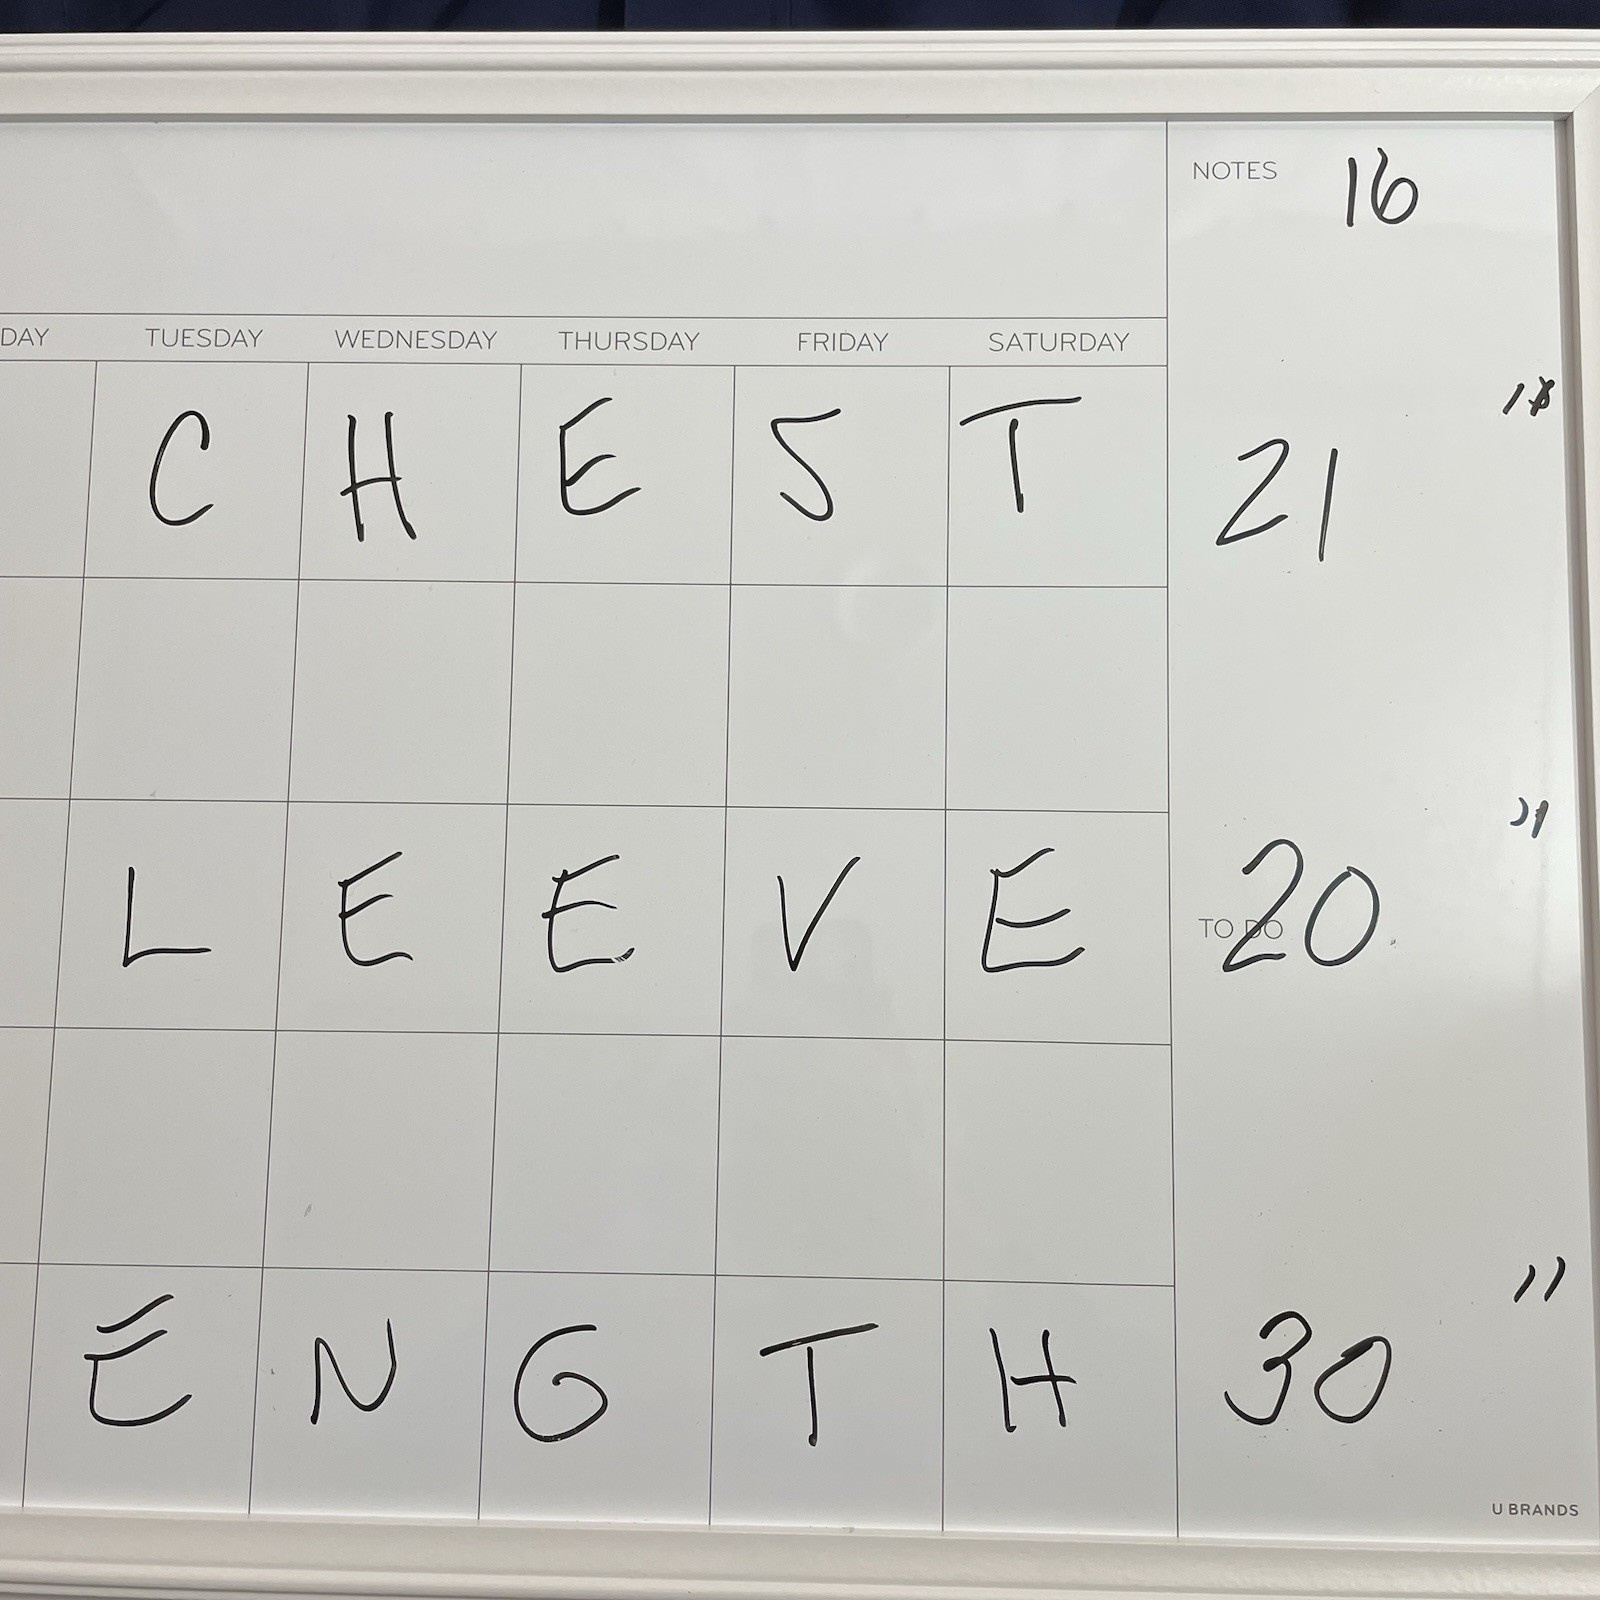 NOTES 16
DAY TUESDAY WEDNESDAY THURSDAY FRIDAY SATURDAY
CHEST 21"
LEEVE 20"
TO DO
ENGTH 30"
U BRANDS